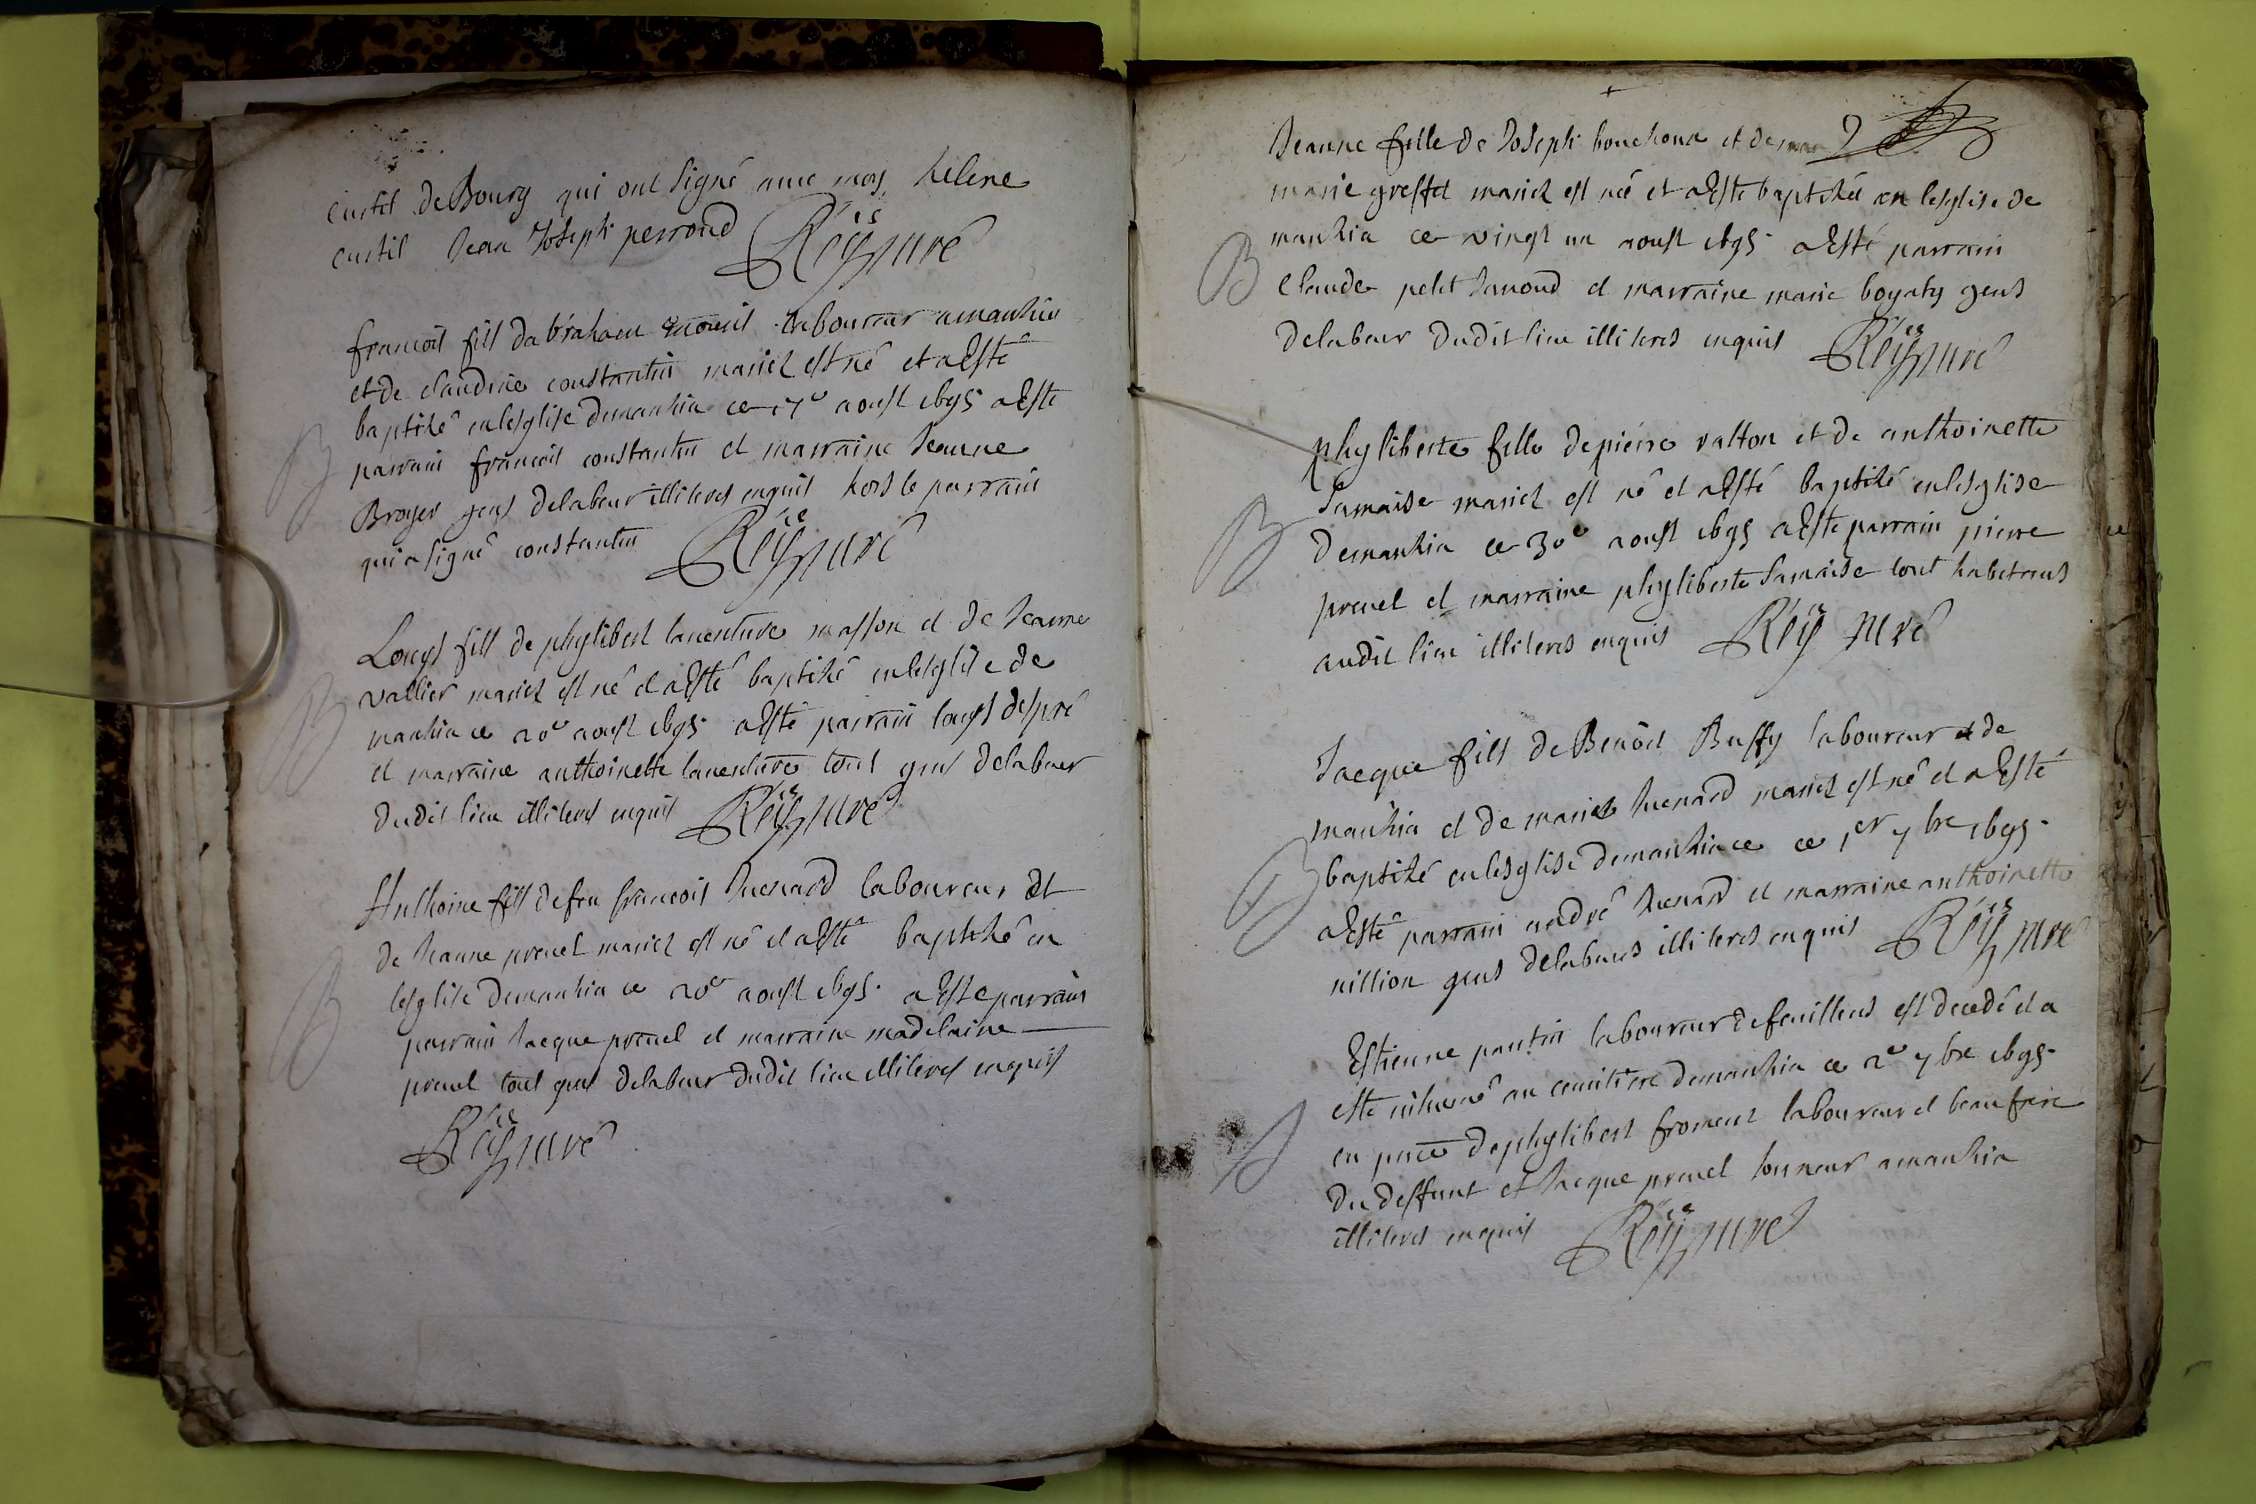 curtil de Bourg qui ont signé avec moy helene
curtil Jean Joseph perroud Réÿ curé
francois fils dabraham laboureur a manhia
et de claudine constantin mariez est né et a Esté
baptizé en lesglise de manhia ce 17e aoust 1695 a Esté
parrain francois constantin et marraine Jeanne
Broyer gens de labeur illiteres enquis hors le parrain
qui a signé constantin Réÿ curé
B
Louys fils de phylibert lauenture masson et de Jeanne
vallier mariez est né et a Esté baptizé en lesglise de
manhia ce 20e aoust 1695 a Esté parrain louys despré
et marraine anthoinette lauenture tous gens de labeur
dudit lieu illiteres enquis Réÿ curé
B
Anthoine fils de feu francois Juenard laboureur et
de Jeanne preuel mariez est né et a Esté baptizé en
lesglise de manhia ce 20e aoust 1695 a Esté parrain
parrain Jacque preuel et marraine madelaine
preuel tous gens de labeur dudit lieu illiteres enquis
Réÿ curé
B
9
Jeanne fille de Joseph bouchoux et de
marie greffet mariez est née et a Esté baptizée en lesglise de
manhia ce vingt un aoust 1695 a Esté parrain
claude petit Janoud et marraine marie boyaty gens
de labeur dudit lieu illiteres enquis Réÿ curé
B
phyliberte fille de pierre valton et de anthoinette
Samaise mariez est né et a Esté baptizé en lesglise
de manhia ce 30e aoust 1695 a Esté parrain pierre
preuel et marraine phyliberte Samaise tout habitans
audit lieu illiteres enquis Réÿ curé
B
Jacque fils de Benoit Buffy laboureur de
manhia et de marie Juenard mariez est né et a Esté
baptizé en lesglise de manhia ce ce 1er 7bre 1695
a Esté parrain andré Juenard et marraine anthoinette
nillion gens de labeurs illiteres enquis Réÿ curé
B
Estienne pautin laboureur de feuillens est decedé et a
esté inhumé au cemitiere de manhia ce 2e 7bre 1695
en pnce de phylibert froment laboureur et beau frere
du deffunt et Jacque preuel a manhia
illiteres enquis Réÿ curé